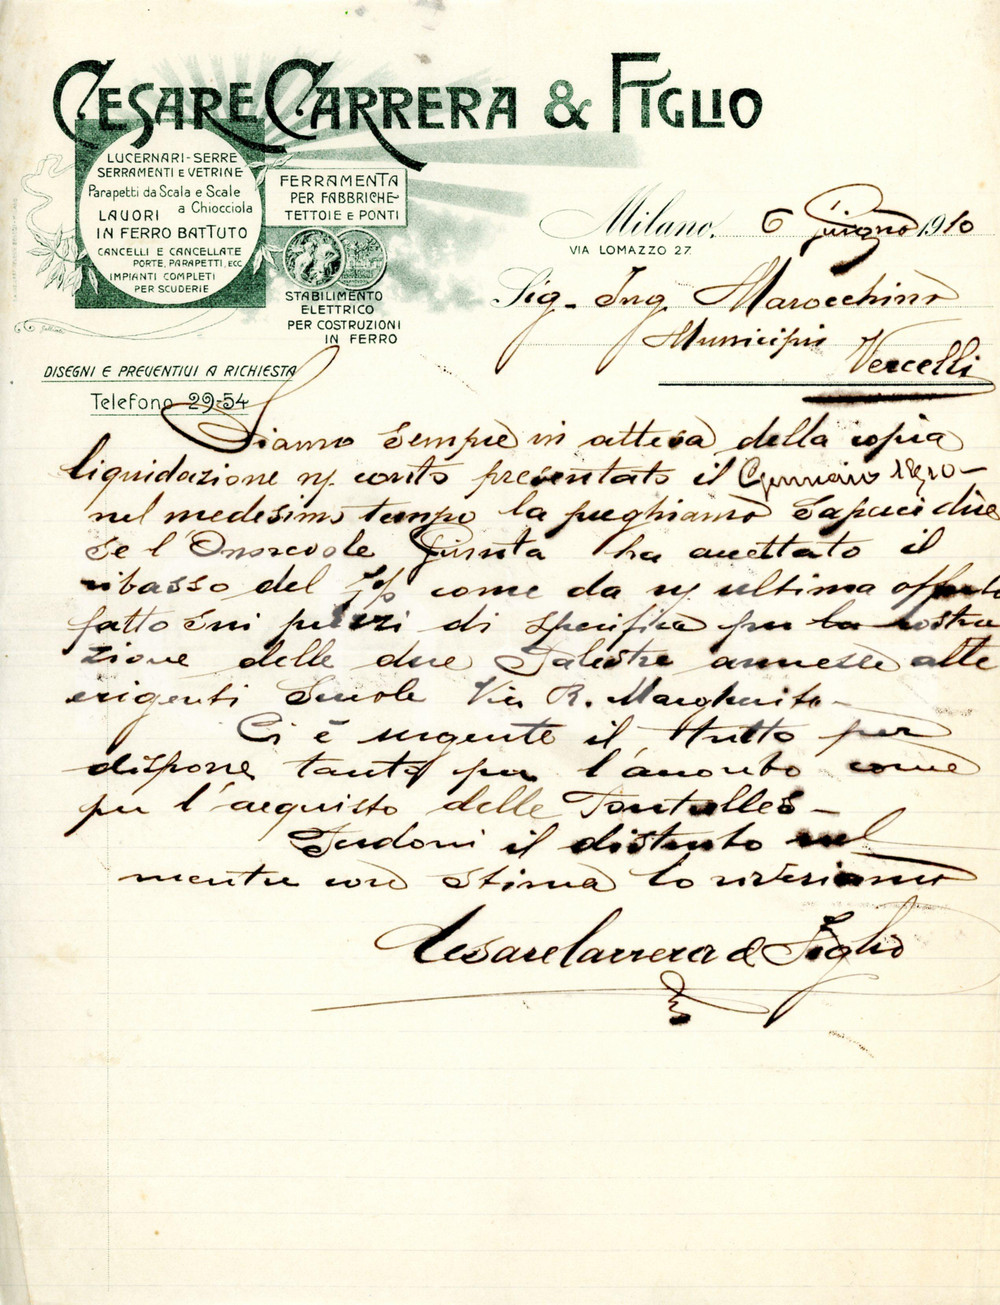 CESARE CARRERA & FIGLIO
LUCERNARI-SERRE
SERRAMENTI E VETRINE
Parapetti da Scala e Scale
a Chiocciola
LAVORI
IN FERRO BATTUTO
CANCELLI E CANCELLATE
PORTE, PARAPETTI, ECC
IMPIANTI COMPLETI
PER SCUDERIE
FERRAMENTA
PER FABBRICHE-
TETTOIE E PONTI
STABILIMENTO
ELETTRICO
PER COSTRUZIONI
IN FERRO
DISEGNI E PREVENTIVI A RICHIESTA
Telefono 29-54
Milano, 6 Giugno 1910
VIA LOMAZZO 27
Sig. Ing. Marocchino
Municipio
Vercelli
Siamo sempre in attesa della copia
liquidazione ns/ conto presentato il Gennaio 1910-
nel medesimo tempo la preghiamo saperci dire
se l'Onorevole Giunta ha accettato il
ribasso del % come da ns/ ultima offerta
fatto sui prezzi di specifica per la costru
zione delle due Palestre annesse alle
erigenti Scuole Via R. Margherita-
Ci è urgente il tutto per
disporre tanto per l'acconto come
per l'acquisto delle
Perdoni il disturbo nel
mentre con stima La riveriamo
Cesare Carrera & Figlio